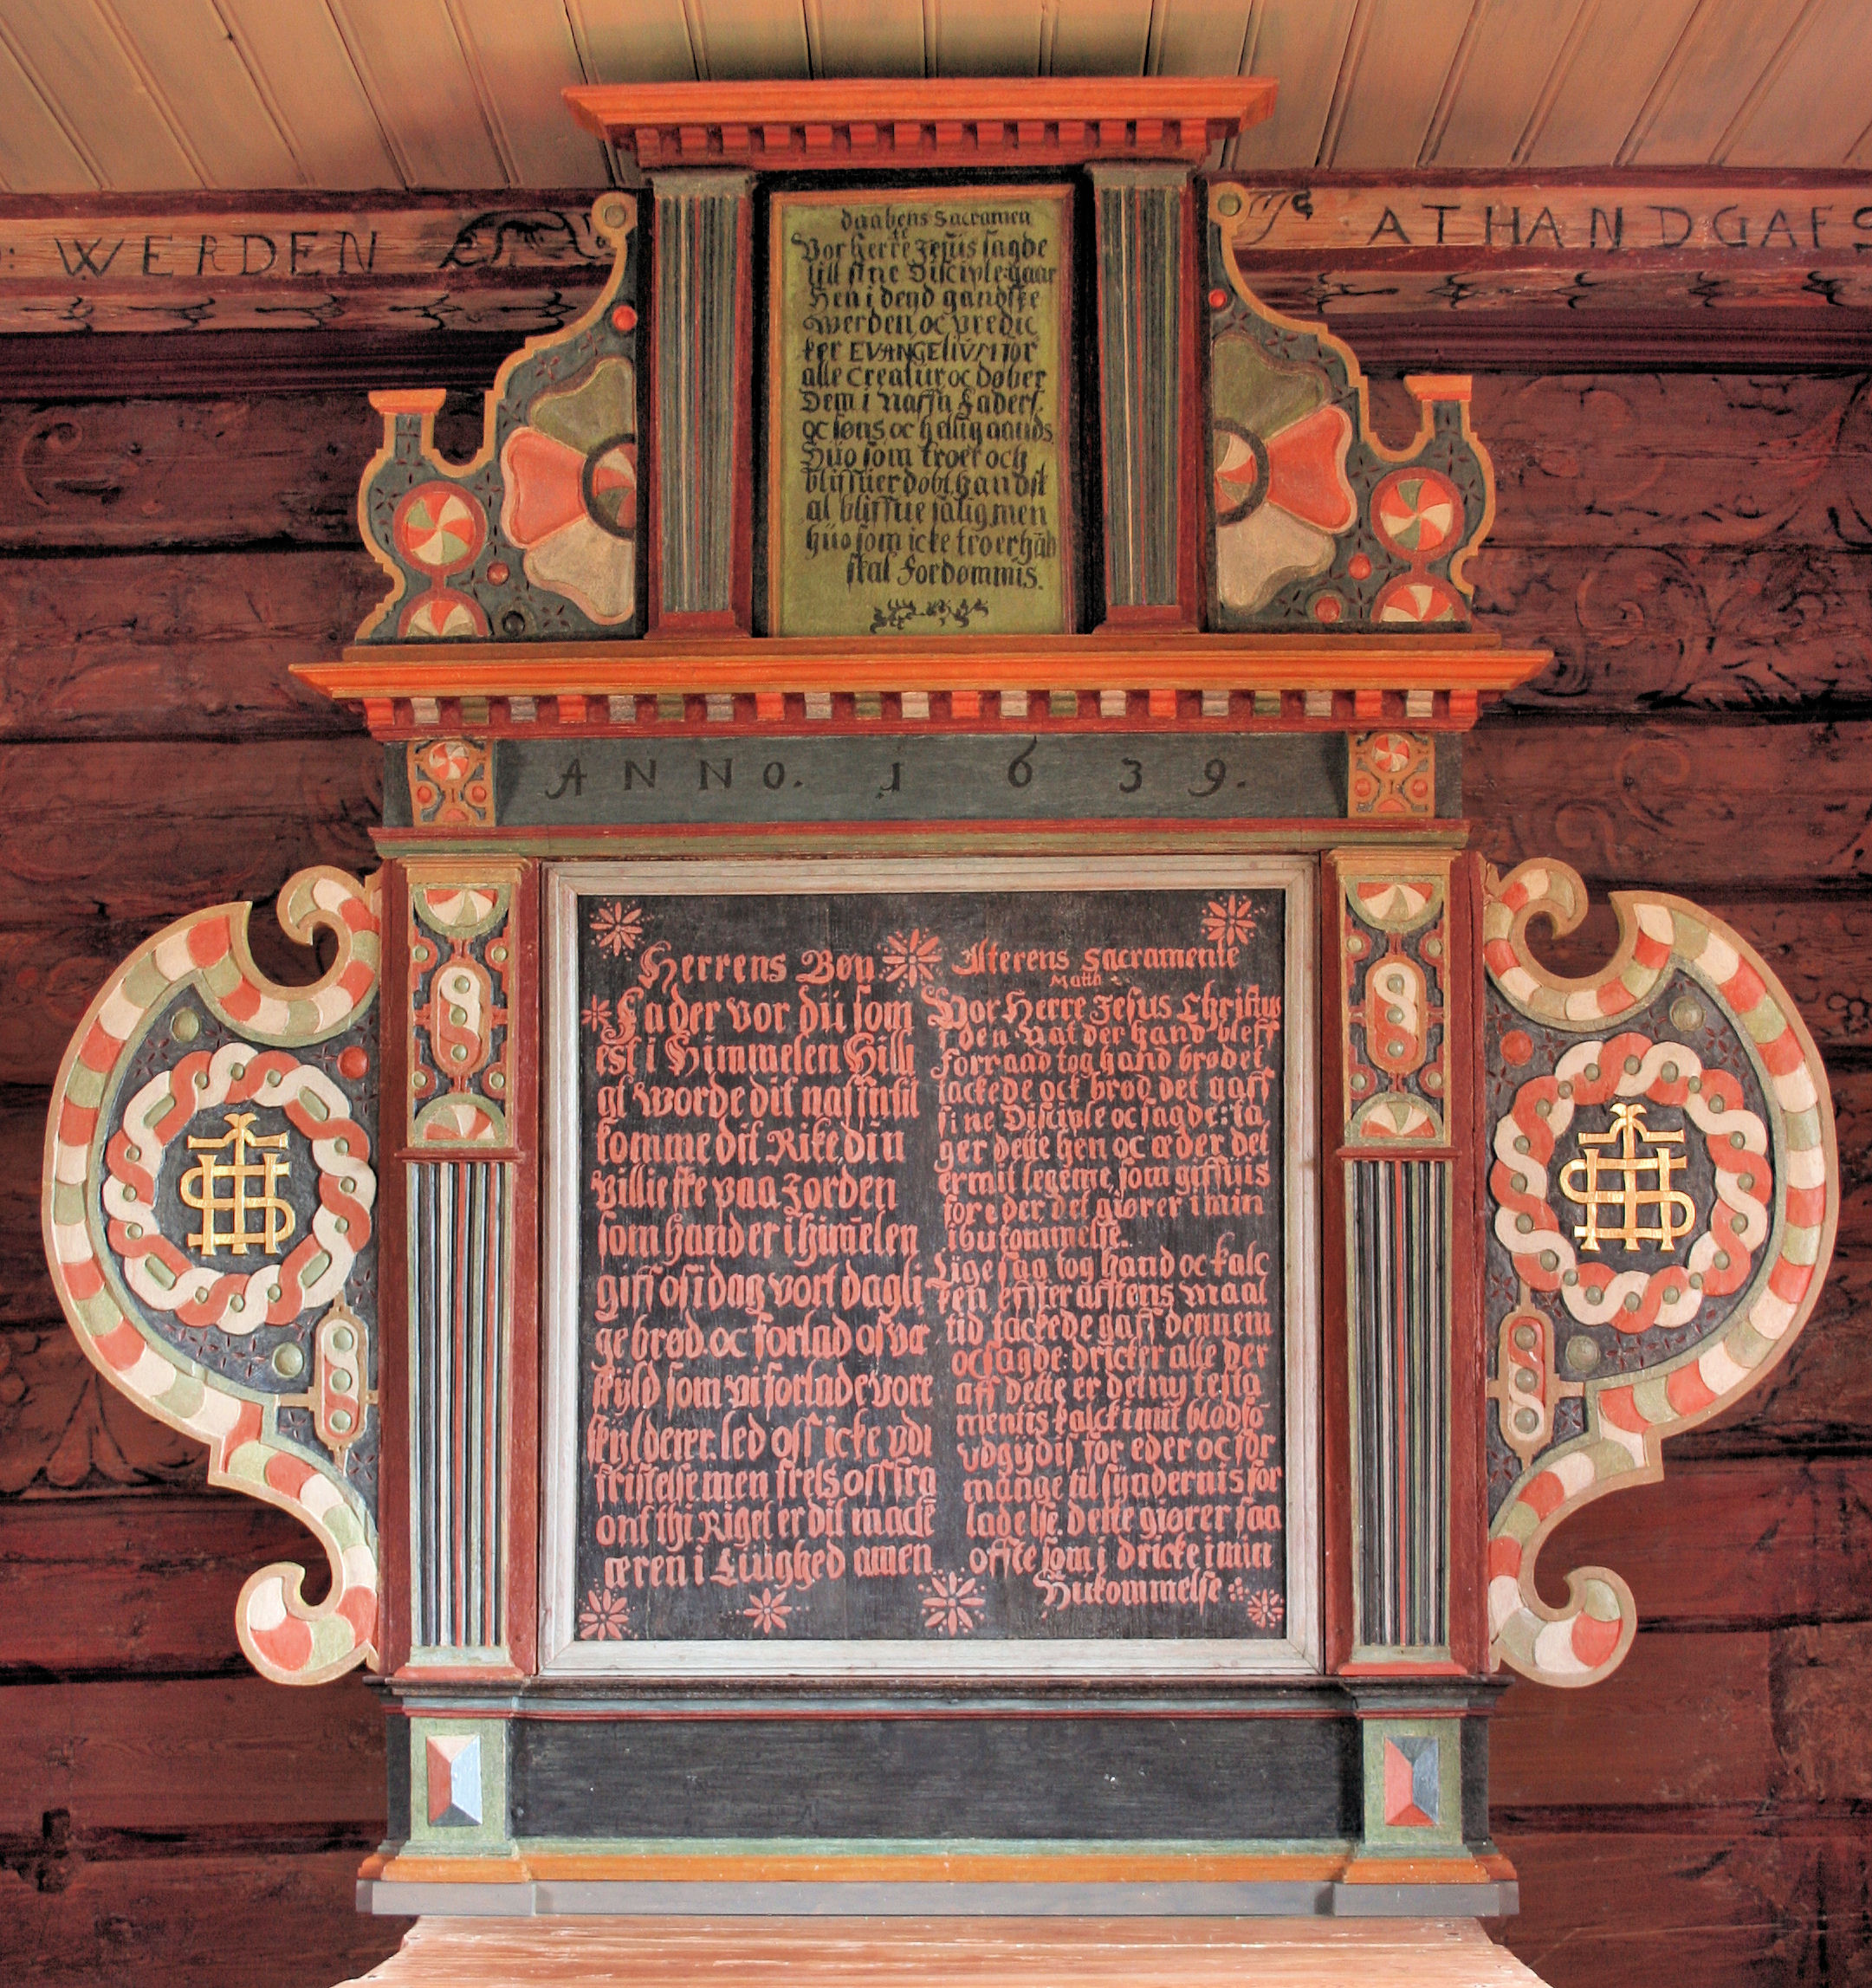 WERDEN
AT HAND GAF S
daabens Sacramen
te
Vor Herre Jesus sagde
till sine Disciple: gaar
Hen i deyd gandske
werden oc predic
ker EVANGELIUM for
alle Creatur oc døber
Dem i Naffn Faders.
oc søns oc hellig aands
Huo som troer och
bliffuer døbt hand sk
al bliffue salig men
huo som icke troer hand
skal Fordømmis.
ANNO. 1639.
Herrens Bøn
Fader vor du som
est i Himmelen Hilli
gt worde dit naffn til
komme dit Rike din
villie ske paa Jorden
som hand er i himelen
giff os i dag vort dagli
ge brød. oc forlad os vor
skyld som vi forlade vore
skylderer. led oss icke vdi
fristelse men frels oss fra
ont thi Riget er dit mackt
æren i Euighed amen
Alterens Sacramente
Matth
Vor Herre Jesus Christus
den Nat der hand bleff
forraad tog hand brødet
tackede ock brød det gaff
sine Disciple oc sagde: ta
ger dette hen oc æder det
er mit legeme, som giffuis
for eder det giører i min
ihukommelse.
Lige saa tog hand oc kalc
ken effter afftens maal
tid tackede gaff dennem
oc sagde: dricker alle der
aff dette er det ny testa
mentis kalck i mit blod so
vdgydis for eder oc for
mange til syndernis for
ladelse. dette giører saa
offte som i dricke i min
Hukommelse
IHS
IHS